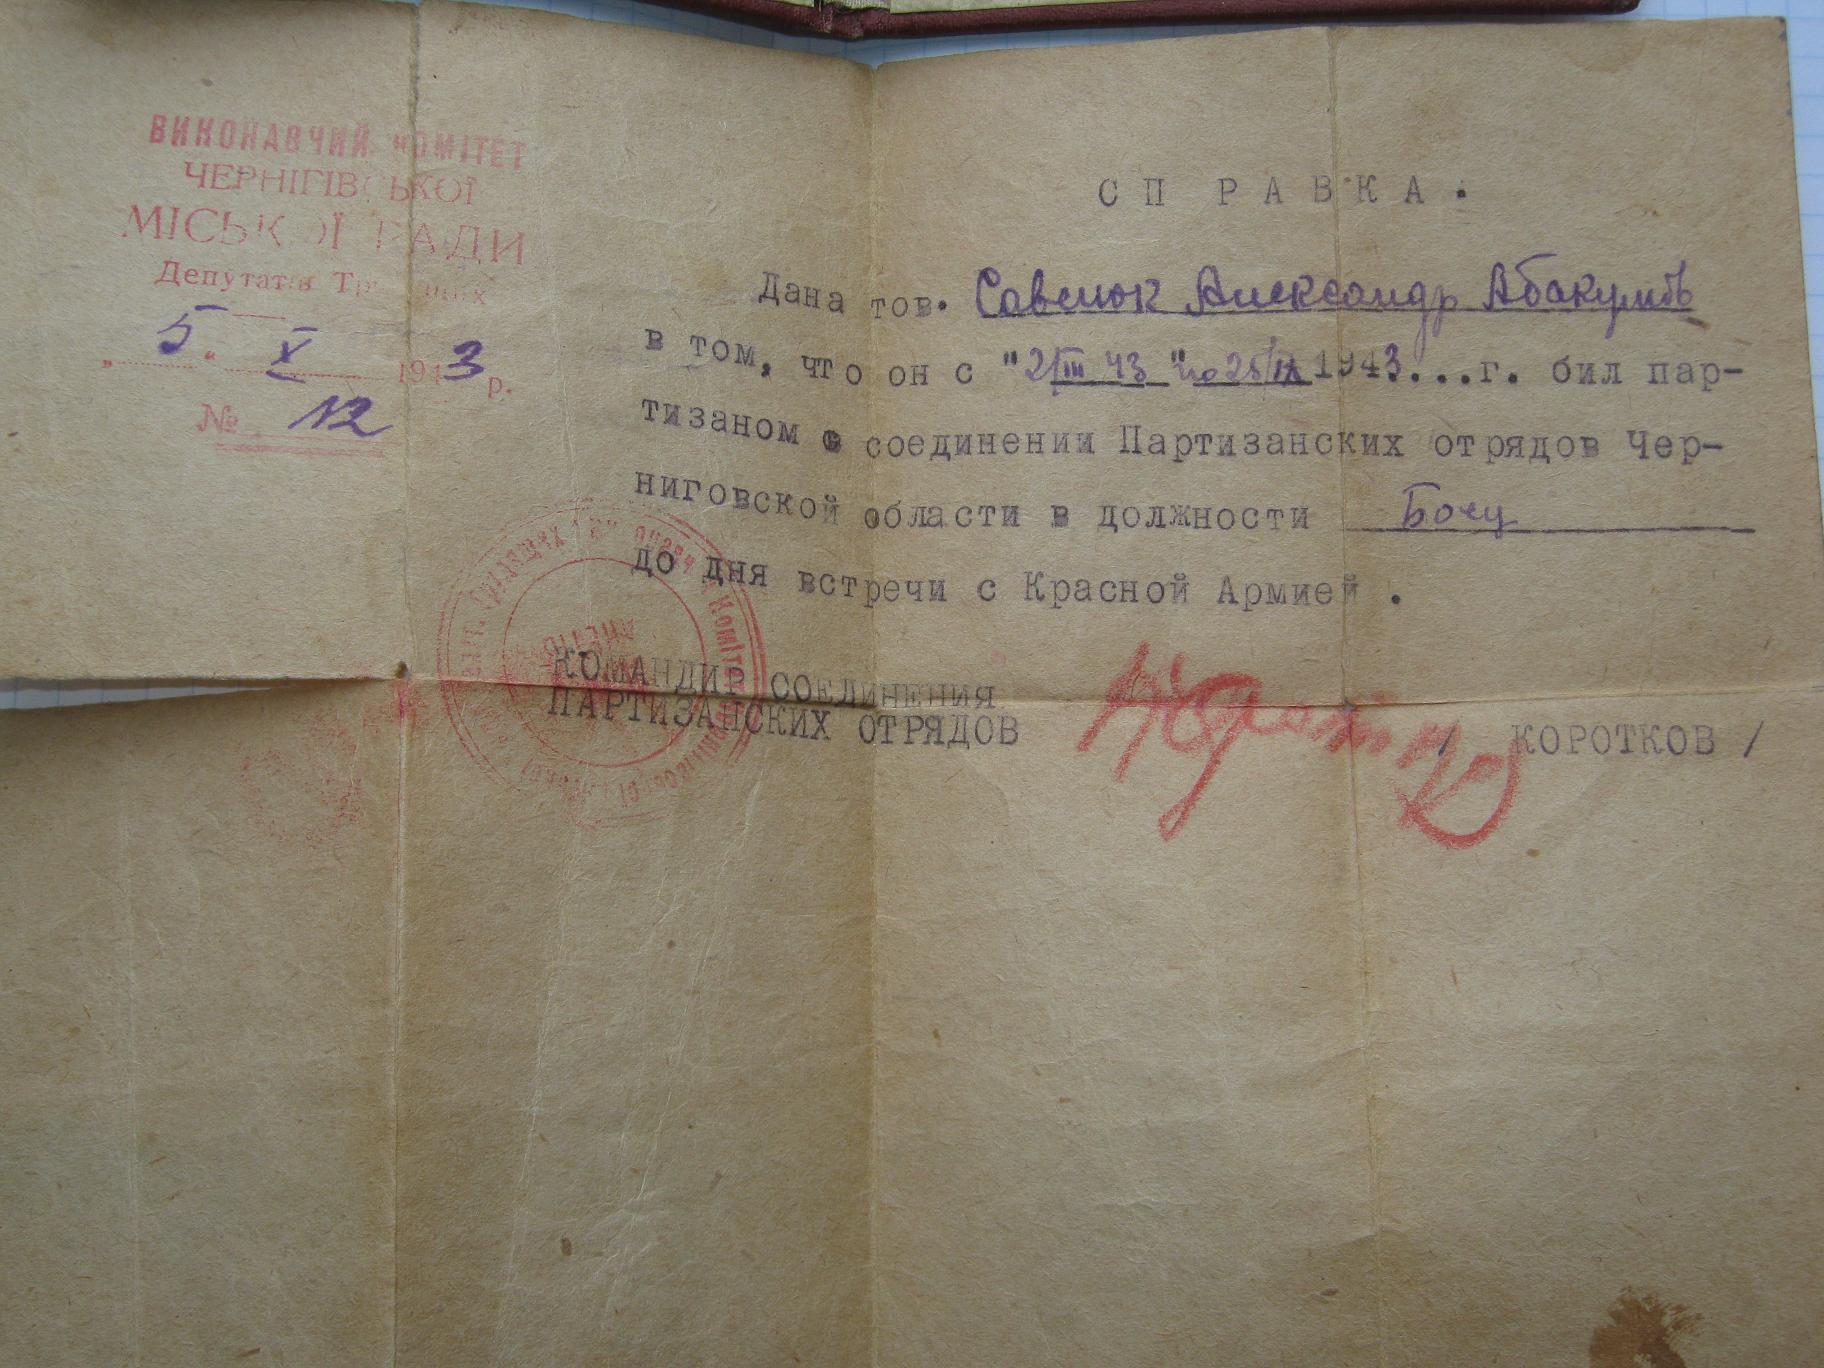 ВИКОНАВЧИЙ КОМІТЕТ
ЧЕРНІГІВСЬКОЇ
МІСЬКОЇ РАДИ
Депутатів Трудящих
"5" X 1943 р.
№ 12
СП РАВКА.
Дана тов. Савенок Александр Абакумов
в том, что он с "2/III 43 "по 25/IX 1943....г. бил пар-
тизаном в соединении Партизанских отрядов Чер-
ниговской области в должности Боец
до дня встречи с Красной Армией .
КОМАНДИР СОЕДИНЕНИЯ
ПАРТИЗАНСКИХ ОТРЯДОВ / КОРОТКОВ /